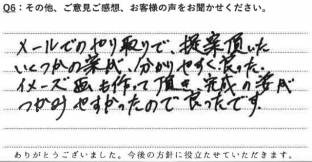 Q6：その他、ご意見ご感想、お客様の声をお聞かせください。
メールでのやり取りで、提案頂いた
いくつかの案が、分かりやすく良った。
イメーズ画も作って頂き、完成の姿が
つかみやすかったので良ったです。
ありがとうございました。今後の方針に役立たせていただきます。